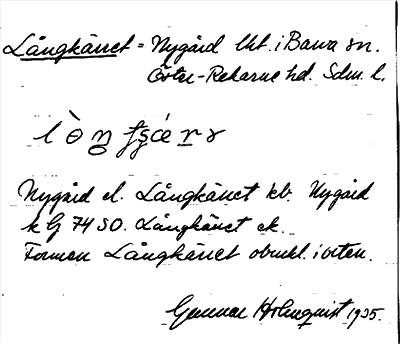 Långkärret = Nygård lht. i Barva sn.
Öster-Rekarne hd. Sdm. l.
Nygård el. Långkärret kb. Nygård
k G 74 SO. Långkärret ek.
Formen Långkärret obrukl. i orten.
Gunnar Holmquist 1935.